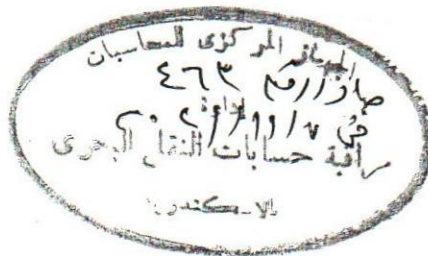 الجهاز المركزى للمحاسبات
صادر رقم ٤٦٣
إدارة
فى ٧ / ١١ /
مراقبة حسابات النقل البحرى
بالاسكندرية